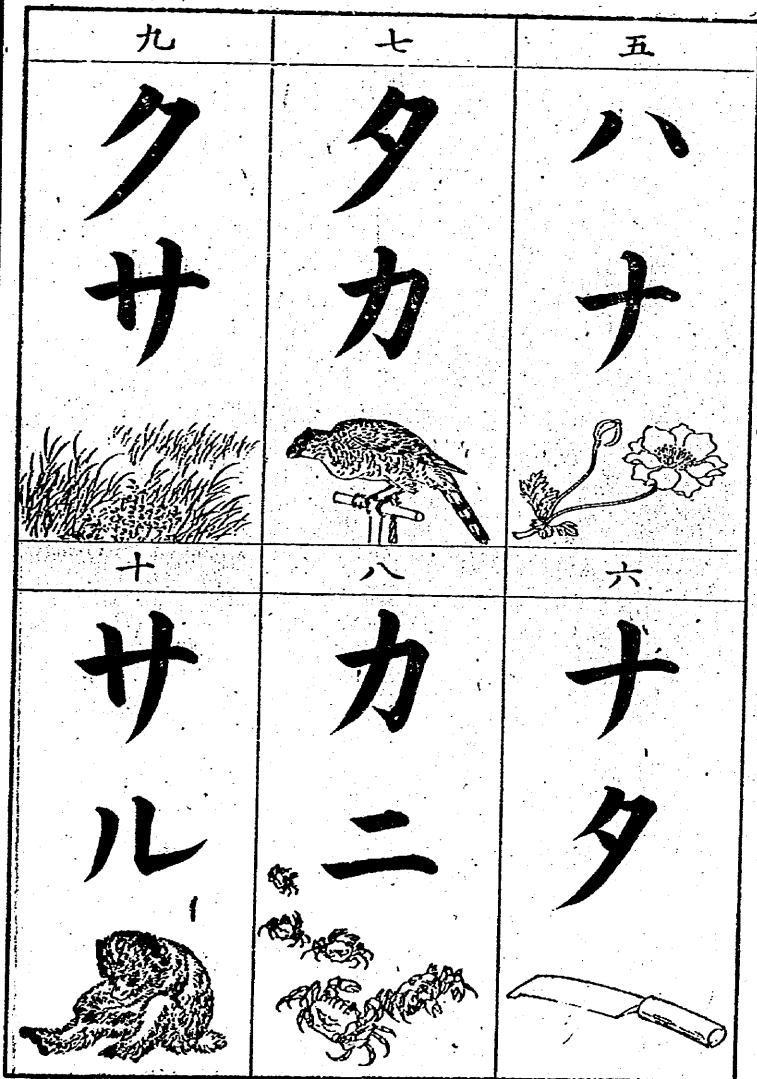 五
ハナ
六
ナタ
七
タカ
八
カニ
九
クサ
十
サル